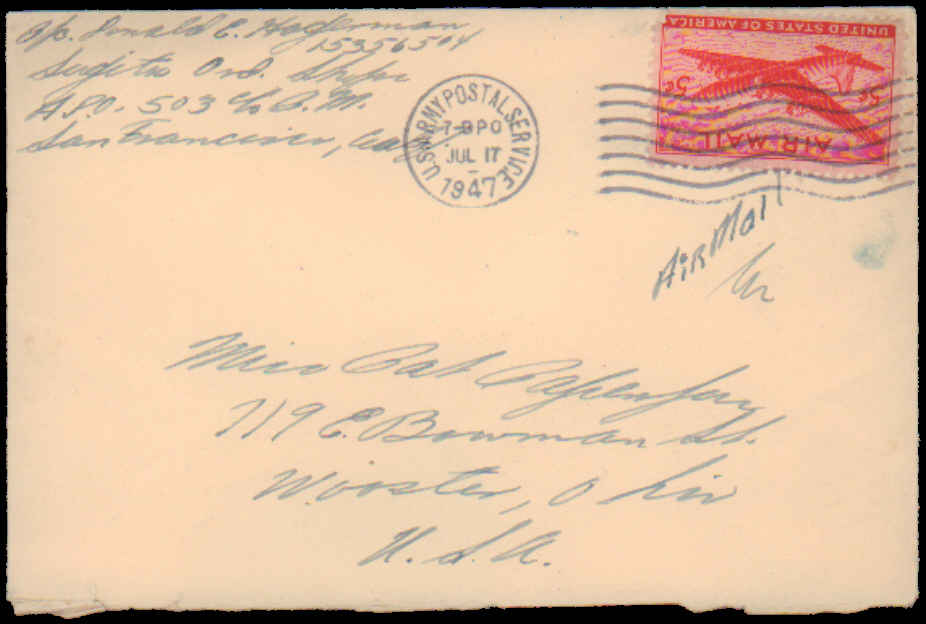 Donald E. Hagerman
15356504
Ord.
A.P.O. 503 c/o P.M.
San Francisco, Calif
U.S. ARMY POSTAL SERVICE
7-BPO
JUL 17
1947
UNITED STATES OF AMERICA
5¢ 5¢
AIR MAIL
Air Mail
Miss Pat
719 E. Bowman St.
Wooster, Ohio
U.S.A.